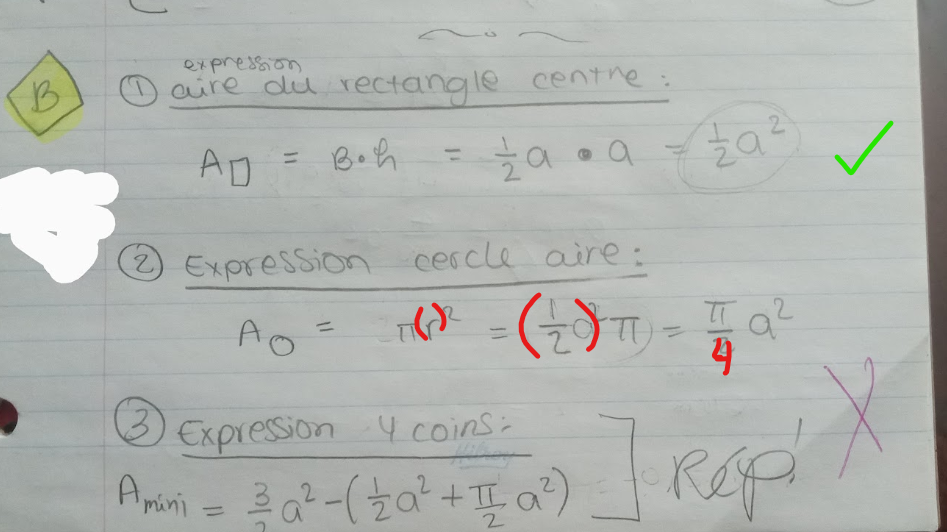 B
expression
① aire du rectangle centre :
A▯ = B•h = 1/2 a • a = 1/2 a²
② Expression cercle aire :
A○ = π(r)² = (1/2 a)² π = π/4 a²
③ Expression 4 coins :
A mini = 3/2 a² - (1/2 a² + π/2 a²)
Rép!